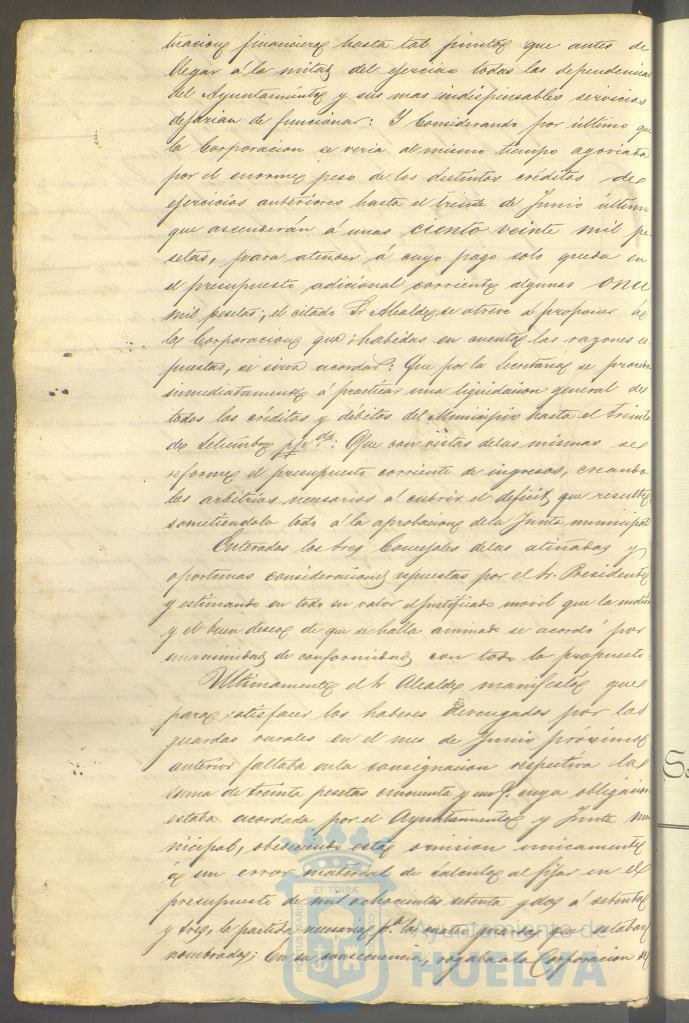 tracion financiera hasta tal punto que antes de
llegar á la mitad del ejercicio todas las dependencias
del Ayuntamiento y sus mas indispensables servicios
dejarian de funcionar: Y Considerando por último que
la Corporacion se veria al mismo tiempo agoviada
por el enorme peso de los distintos créditos de
ejercicios anteriores hasta el treinta de Junio último
que ascenderán á unas ciento veinte mil pe
setas, para atender á cuyo pago solo queda en
el presupuesto adicional corriente algunas once
mil pesetas; el citado Sr Alcalde se atreve á proponer á
la Corporacion que habidas en cuenta las razones es
puestas, se sirva acordar: Que por la Secretaria se proceda
inmediatamente á practicar una liquidacion general de
todos los créditos y débitos del Municipio hasta el treinta
de Setiembre ppdo: Que con vista de las mismas se
reforme el presupuesto corriente de ingresos, creando
los arbitrios necesarios á cubrir el deficit que resulte
sometiendolo todo á la aprobacion de la Junta municipal
Enterados los Sres Concejales de las atinadas y
oportunas consideraciones espuestas por el Sr. Presidente
y estimando en todo su valor el justificado movil que la
y el buen deseo de que se halla animado se acordó por
unanimidad de conformidad con todo lo propuesto.
Ultimamente el Sr Alcalde manifestó que
para satisfacer los haberes devengados por los
guardas rurales en el mes de Junio proximo
anterior faltaba en la consignacion respectiva la
suma de treinta pesetas cincuenta y un cuya obligacion
estaba acordada por el Ayuntamiento y Junta mu
nicipal, obedeciendo esta omision unicamente
á un error material de calculo al fijar en el
presupuesto de mil ochocientos setenta y dos á setenta
y tres, la partida necesaria pa los cuatro guardas que estaban
nombrados; En su consecuencia, rogaba a la Corporacion se
PORTUS MARIS ET TERRÆ CUSTODIA
Ayuntamiento de
HUELVA